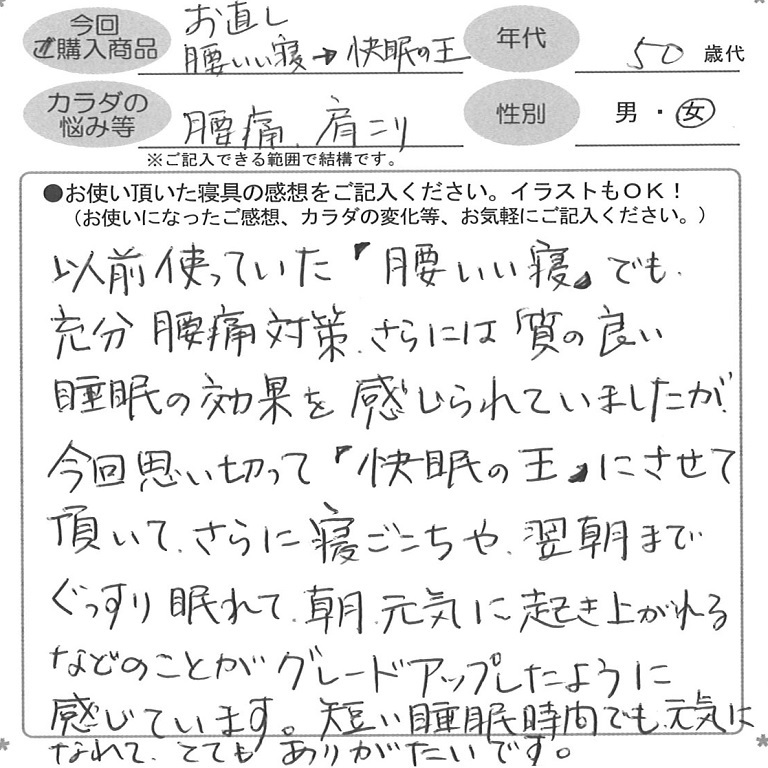 今回
ご購入商品
お直し
腰いい寝→快眠の王
年代
50 歳代
カラダの
悩み等
腰痛、肩こり
性別
男・女
※ご記入できる範囲で結構です。
●お使い頂いた寝具の感想をご記入ください。イラストもOK！
（お使いになったご感想、カラダの変化等、お気軽にご記入ください。）
以前使っていた『腰いい寝』でも、
充分腰痛対策、さらには質の良い
睡眠の効果を感じられていましたが、
今回思い切って『快眠の王』にさせて
頂いて、さらに寝ごこちや、翌朝まで
ぐっすり眠れて、朝、元気に起き上がれる
などのことがグレードアップしたように
感じています。短い睡眠時間でも、元気に
なれて、とてもありがたいです。